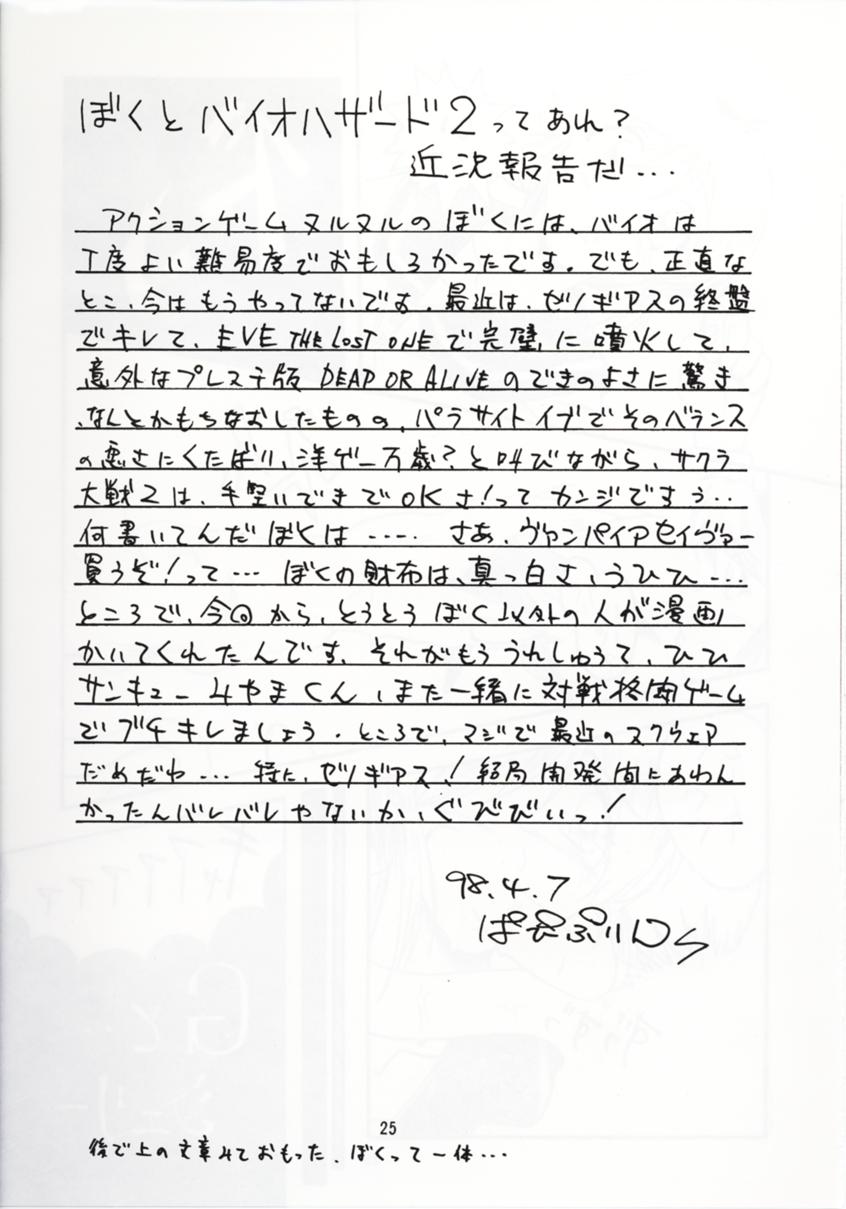 ぼくとバイオハザード2ってあれ?
近況報告だ...
アクションゲームヌルヌルのぼくには、バイオは
丁度よい難易度でおもしろかったです。でも、正直な
とこ、今はもうやってないです。最近は、ゼノギアスの終盤
でキレて、EVE THE LOST ONEで完璧に噴火して、
意外なプレステ版DEAD OR ALIVEのできのよさに驚き
、なんとかもちなおしたものの、パラサイトイブでそのベランス
の悪さにくたばり、洋ゲー万歳?と叫びながら、サクラ
大戦2は、手堅いできでOKさ!ってカンジですぅ...
何書いてんだぼくは..... さあ、ヴァンパイアセイヴァー
買うぞ!って... ぼくの財布は、真っ白さ、うひひ...
ところで、今回から、とうとうぼく以外の人が漫画
かいてくれたんです、それがもううれしゅうて、ひひ
サンキューみやまくん、また一緒に対戦格闘ゲーム
でブチキレましょう。ところで、マジで最近のスクウェア
だめだわ... 特に、ゼノギアス!結局開発間にあわん
かったんバレバレやないか、ぐびびいっ!
98.4.7
25
後で上の文章みておもった、ぼくって一体...